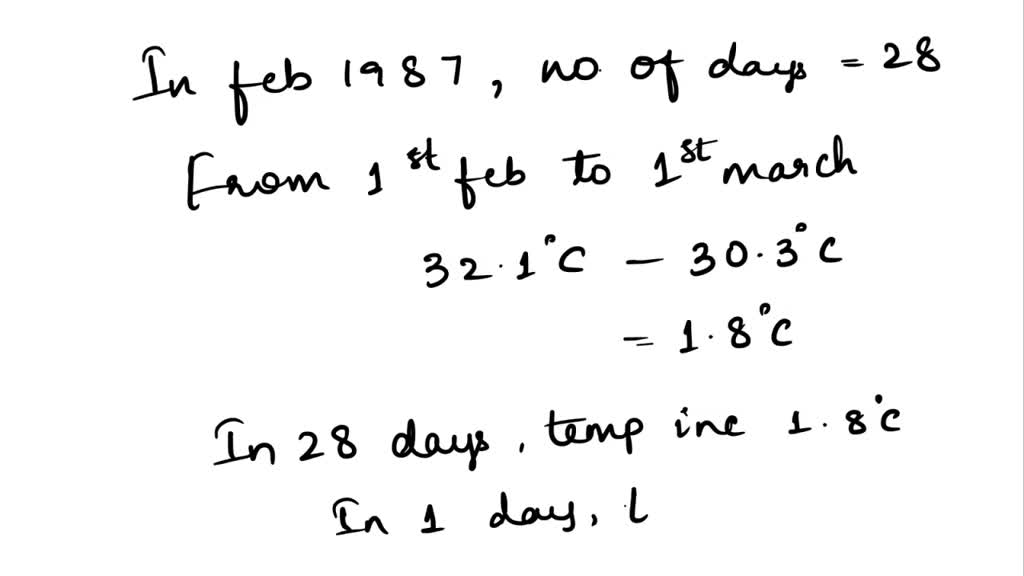 In feb 1987, no. of days = 28
From 1st feb to 1st march
32.1°C - 30.3°C
= 1.8°C
In 28 days, temp inc 1.8°C
In 1 day, t